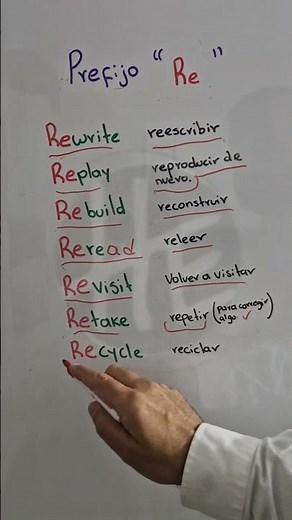 Prefijo “Re”
Rewrite reescribir
Replay reproducir de nuevo.
Rebuild reconstruir
Reread releer
Revisit Volver a visitar
Retake repetir (para corregir algo ✓)
Recycle reciclar